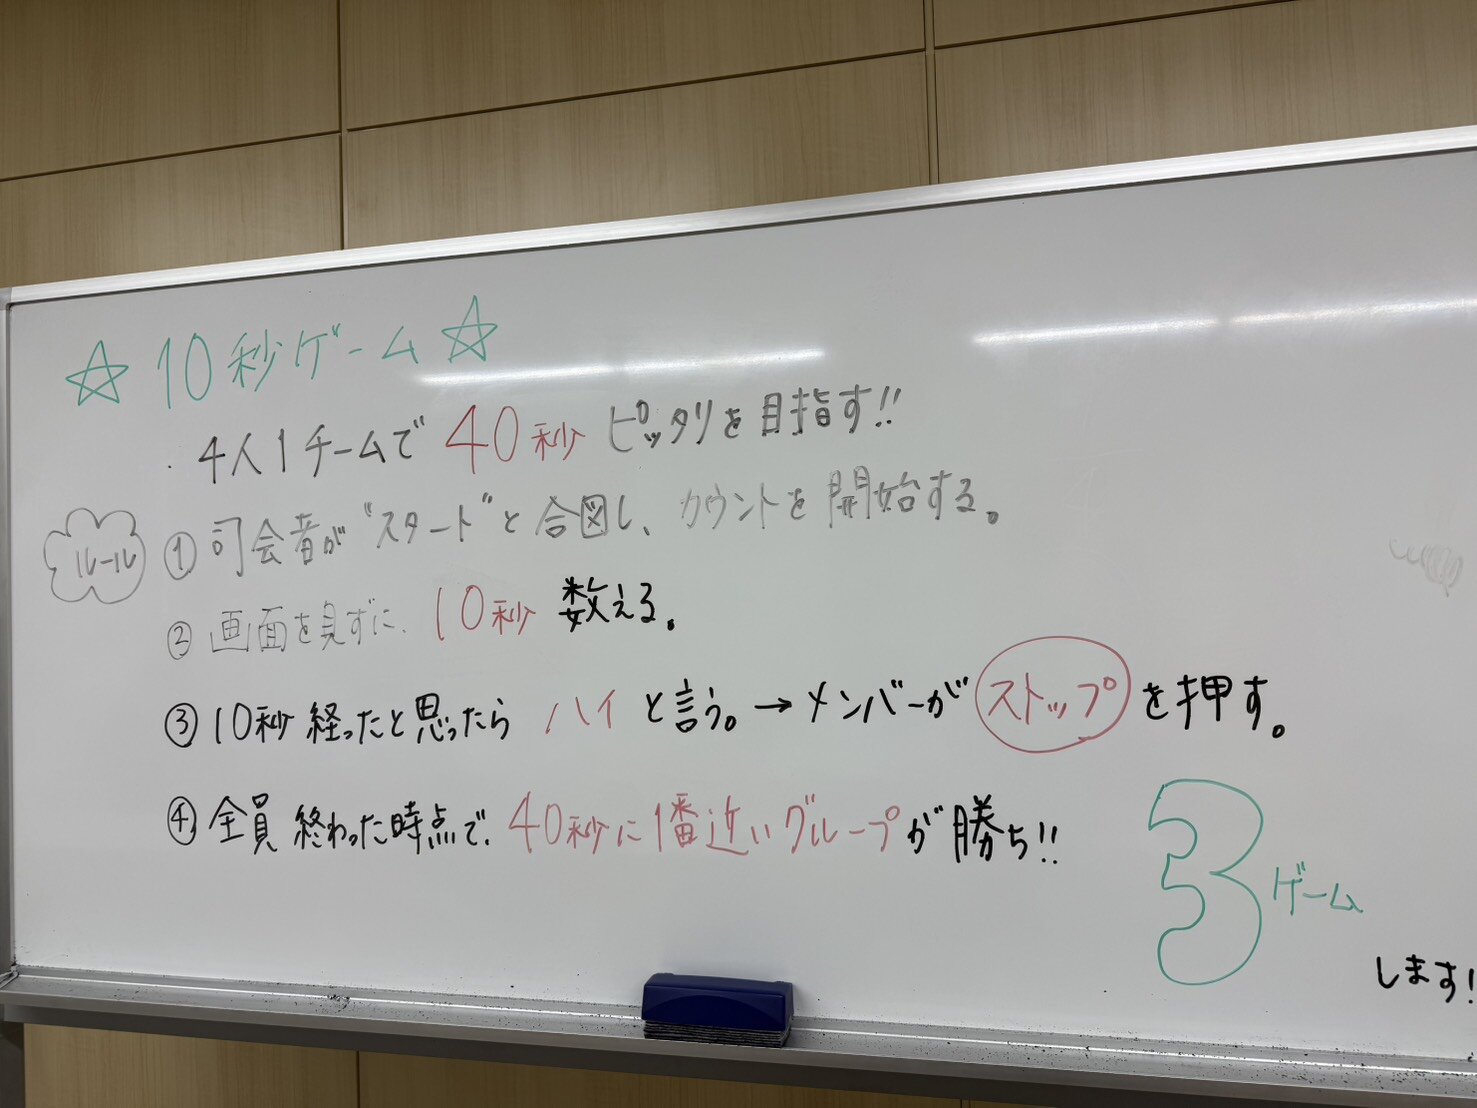 ☆10秒ゲーム☆
・4人1チームで40秒ピッタリを目指す!!
ルール
①司会者が"スタート"と合図し、カウントを開始する。
②画面を見ずに、10秒数える。
③10秒経ったと思ったらハイと言う。→メンバーがストップを押す。
④全員終わった時点で、40秒に1番近いグループが勝ち!!
3ゲーム
します!